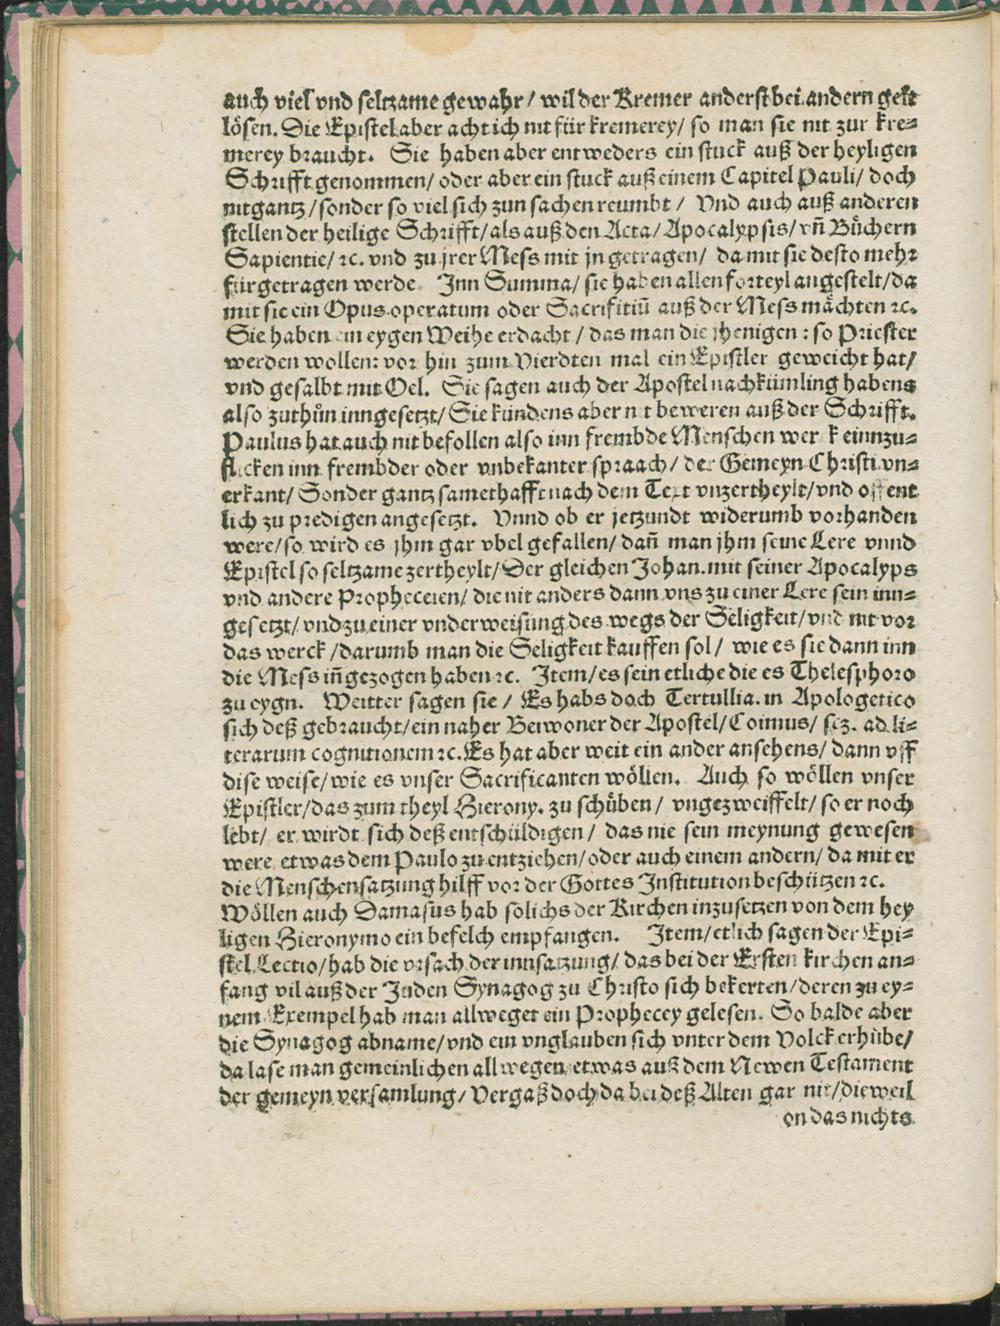 auch viel vnd seltzame gewahr / wil der Kremer anderst bei andern gelt
lösen. Die Epistel aber acht ich nit für kremerey / so man sie nit zur kre⸗
merey braucht. Sie haben aber entweders ein stuck auß der heyligen
Schrifft genommen / oder aber ein stuck auß einem Capitel Pauli / doch
nit gantz / sonder so viel sich zun sachen reumbt / Vnd auch auß anderen
stellen der heilige Schrifft / als auß den Acta / Apocalypsis / vñ Bůchern
Sapientie / ꝛc. vnd zu jrer Mess mit jn getragen / da mit sie desto mehr
fürgetragen werde Inn Summa / sie haben allen forteyl angestelt / da
mit sie ein Opus operatum oder Sacrifitiū auß der Mess mächten ꝛc.
Sie haben ein eygen Weihe erdacht / das man die jhenigen : so Priester
werden wollen: vor hin zum Vierdten mal ein Epistler geweicht hat /
vnd gesalbt mit Oel. Sie sagen auch der Apostel nachkümling habens
also zuthůn inngesetzt / Sie kündens aber nit beweren auß der Schrifft.
Paulus hat auch nit befollen also inn frembde Menschen wer k einnzu⸗
flicken inn frembder oder vnbekanter spraach / der Gemeyn Christi vn⸗
erkant / Sonder gantz samethafft nach dem Text vnzertheylt / vnd offent
lich zu predigen angesetzt. Vnnd ob er jetzundt widerumb vorhanden
were / so wird es jhm gar vbel gefallen / dañ man jhm seine Lere vnnd
Epistel so seltzame zertheylt / Der gleichen Johan. mit seiner Apocalyps
vnd andere Propheceien / die nit anders dann vns zu einer Lere sein inn⸗
gesetzt / vnd zu einer vnderweisung des wegs der Seligkeit / vnd nit vor
das werck / darumb man die Seligkeit kauffen sol / wie es sie dann inn
die Mess iñgezogen haben ꝛc. Item / es sein etliche die es Thelesphoro
zu eygn. Weitter sagen sie / Es habs doch Tertullia. in Apologetico
sich deß gebraucht / ein naher Beiwoner der Apostel / Coimus / scz. ad li⸗
terarum cognitionem ꝛc. Es hat aber weit ein ander ansehens / dann vff
dise weise / wie es vnser Sacrificanten wöllen. Auch so wöllen vnser
Epistler / das zum theyl Hierony. zu schüben / vngezweiffelt / so er noch
lebt / er wirdt sich deß entschüldigen / das nie sein meynung gewesen
were etwas dem Paulo zu entziehen / oder auch einem andern / da mit er
die Menschensatzung hilff vor der Gottes Institution beschützen ꝛc.
Wöllen auch Damasus hab solichs der Kirchen inzusetzen von dem hey
ligen Hieronymo ein befelch empfangen. Item / etlich sagen der Epi⸗
stel Lectio / hab die vrsach der innsatzung / das bei der Ersten kirchen an⸗
fang vil auß der Juden Synagog zu Christo sich bekerten / deren zu ey⸗
nem Exempel hab man allweget ein Prophecey gelesen. So balde aber
die Synagog abname / vnd ein vnglauben sich vnter dem Volck erhübe /
da lase man gemeinlichen allwegen etwas auß dem Newen Testament
der gemeyn versamlung / Vergaß doch da bei deß Alten gar nit / dieweil
on das nichts